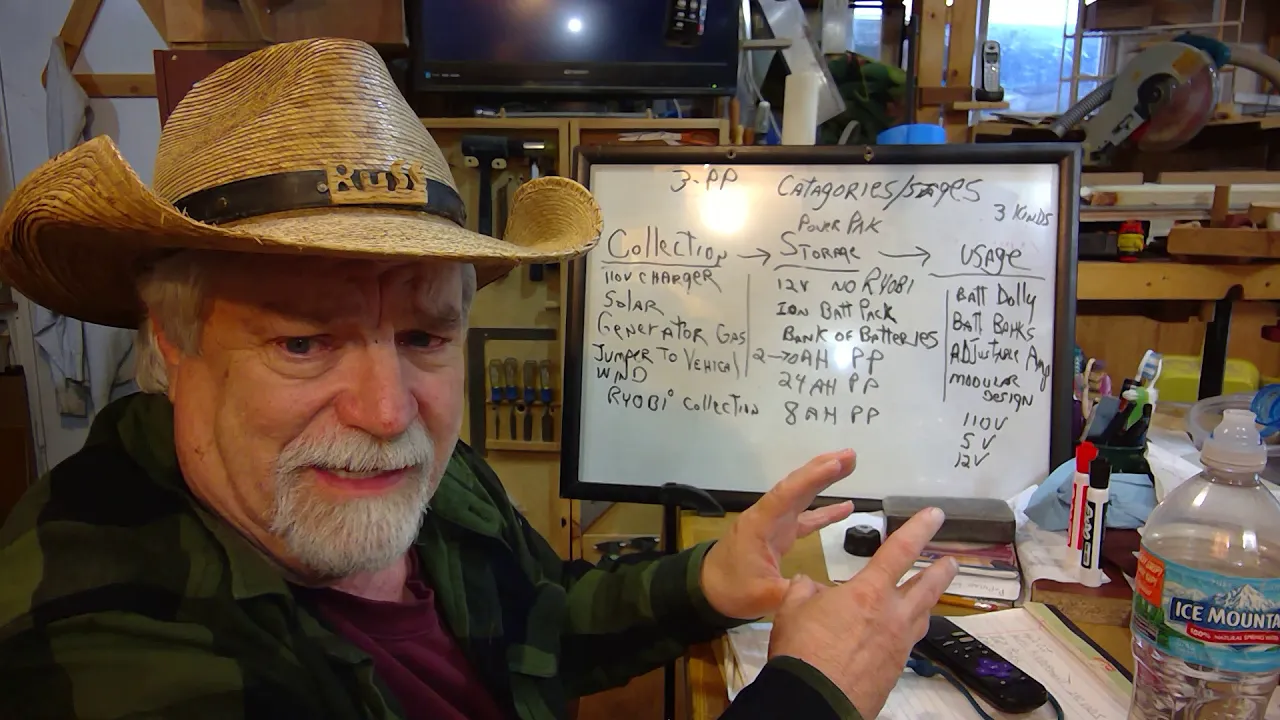 Russ
3-PP CATAGORIES/STAGES
3 KINDS
POWER PAK
Collection → STORAGE → USAGE
110V CHARGER
SOLAR
GENERATOR GAS
JUMPER TO VEHICAL
WND
RYOBI COLLECTION
12V NO RYOBI
ION BATT PACK
BANK OF BATTERIES
2-70AH PP
24AH PP
8AH PP
BATT DOLLY
BATT BANKS
ADJUSTABLE AMP
MODULAR
DESIGN
110V
5V
12V
ICE MOUNTA
100% NATURAL SPRING